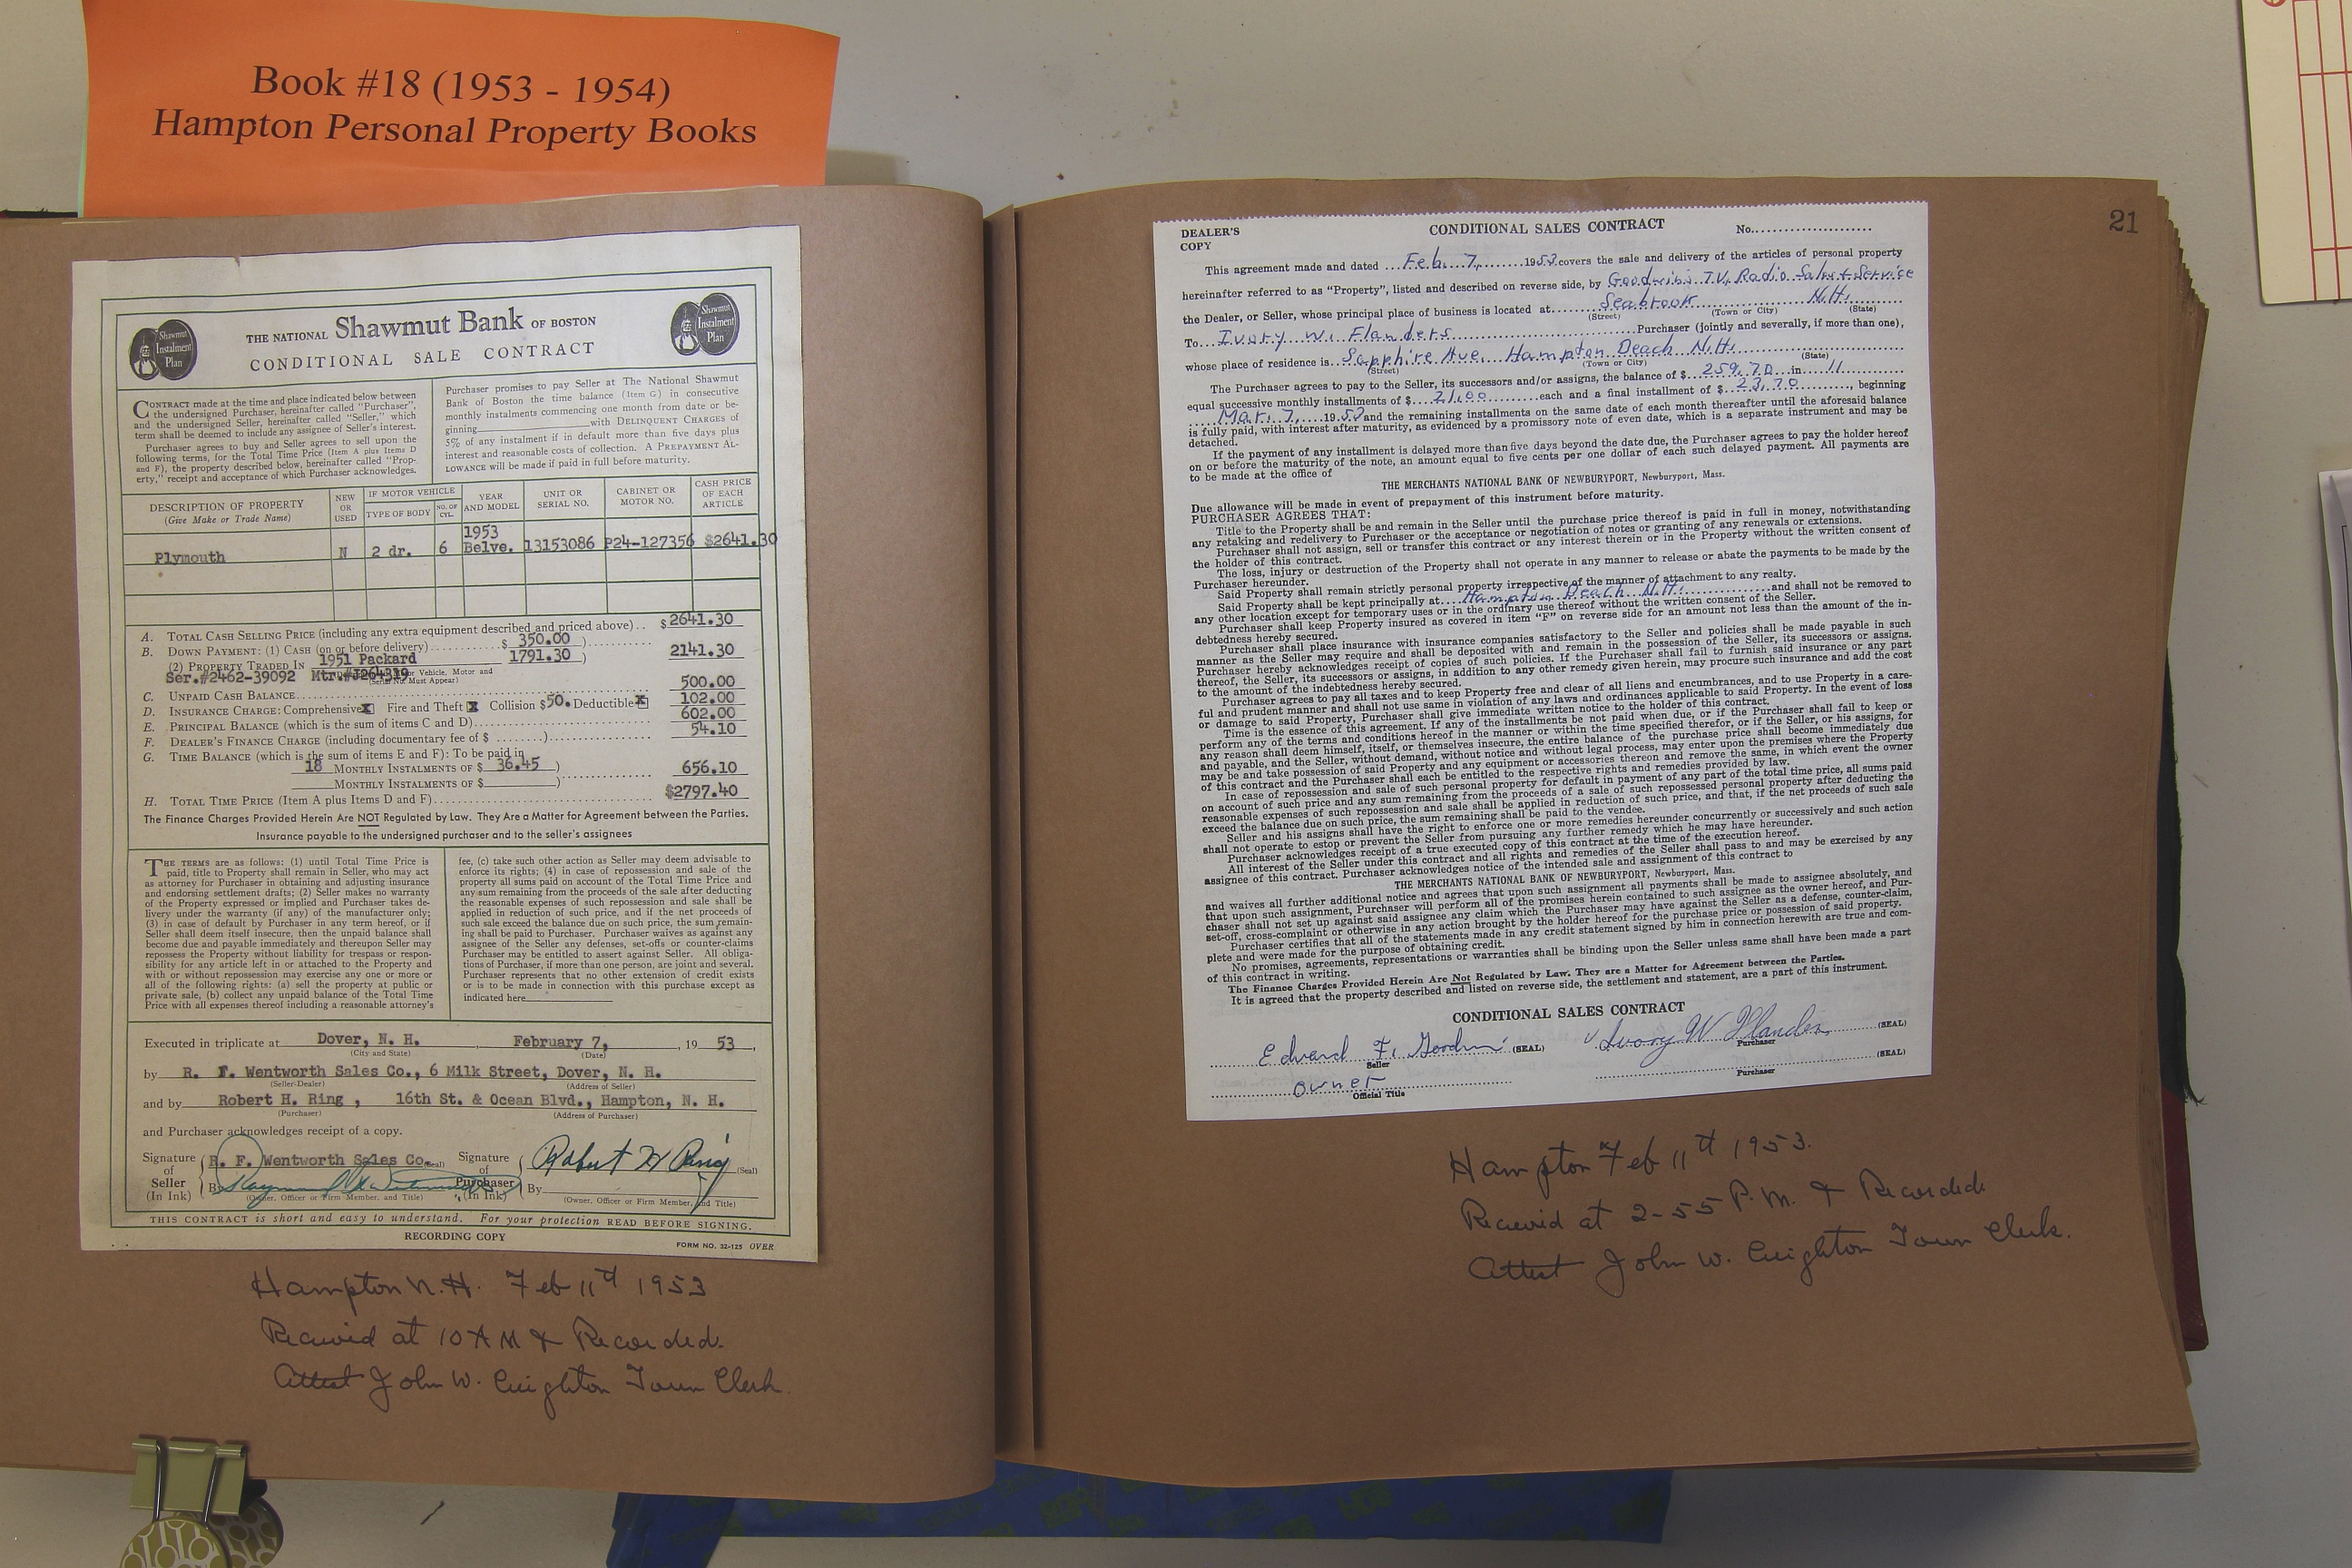 Book #18 (1953 - 1954)
Hampton Personal Property Books
Shawmut
Instalment
Plan
THE NATIONAL Shawmut Bank OF BOSTON
CONDITIONAL SALE CONTRACT
Shawmut
Instalment
Plan
CONTRACT made at the time and place indicated below between
the undersigned Purchaser, hereinafter called "Purchaser",
and the undersigned Seller, hereinafter called "Seller," which
term shall be deemed to include any assignee of Seller's interest.
Purchaser agrees to buy and Seller agrees to sell upon the
following terms, for the Total Time Price (Item A plus Items D
and F), the property described below, hereinafter called "Prop-
erty," receipt and acceptance of which Purchaser acknowledges.
Purchaser promises to pay Seller at The National Shawmut
Bank of Boston the time balance (Item G) in consecutive
monthly instalments commencing one month from date or be-
ginning with DELINQUENT CHARGES of
5% of any instalment if in default more than five days plus
interest and reasonable costs of collection. A PREPAYMENT AL-
LOWANCE will be made if paid in full before maturity.
DESCRIPTION OF PROPERTY
(Give Make or Trade Name)
NEW
OR
USED
IF MOTOR VEHICLE
TYPE OF BODY
NO. OF
CYL.
YEAR
AND MODEL
UNIT OR
SERIAL NO.
CABINET OR
MOTOR NO.
CASH PRICE
OF EACH
ARTICLE
Plymouth N 2 dr. 6 1953 Belve. 13153086 P24-127356 $2641.30
A. TOTAL CASH SELLING PRICE (including any extra equipment described and priced above).. $2641.30
B. DOWN PAYMENT: (1) CASH (on or before delivery)..........$ 350.00 )
(2) PROPERTY TRADED IN 1951 Packard 1791.30 ) 2141.30
Ser.#2462-39092 Mtr.#J264319 or Vehicle, Motor and
(Serial No. Must Appear)
C. UNPAID CASH BALANCE 500.00
D. INSURANCE CHARGE: Comprehensive X Fire and Theft X Collision $50. Deductible X 102.00
E. PRINCIPAL BALANCE (which is the sum of items C and D) 602.00
F. DEALER'S FINANCE CHARGE (including documentary fee of $ ........) 54.10
G. TIME BALANCE (which is the sum of items E and F): To be paid in
18 MONTHLY INSTALMENTS OF $ 36.45 ) 656.10
MONTHLY INSTALMENTS OF $ )
H. TOTAL TIME PRICE (Item A plus Items D and F) $2797.40
The Finance Charges Provided Herein Are NOT Regulated by Law. They Are a Matter for Agreement between the Parties.
Insurance payable to the undersigned purchaser and to the seller's assignees
THE TERMS are as follows: (1) until Total Time Price is
paid, title to Property shall remain in Seller, who may act
as attorney for Purchaser in obtaining and adjusting insurance
and endorsing settlement drafts; (2) Seller makes no warranty
of the Property expressed or implied and Purchaser takes de-
livery under the warranty (if any) of the manufacturer only;
(3) in case of default by Purchaser in any term hereof, or if
Seller shall deem itself insecure, then the unpaid balance shall
become due and payable immediately and thereupon Seller may
repossess the Property without liability for trespass or respon-
sibility for any article left in or attached to the Property and
with or without repossession may exercise any one or more or
all of the following rights: (a) sell the property at public or
private sale, (b) collect any unpaid balance of the Total Time
Price with all expenses thereof including a reasonable attorney's
fee, (c) take such other action as Seller may deem advisable to
enforce its rights; (4) in case of repossession and sale of the
property all sums paid on account of the Total Time Price and
any sum remaining from the proceeds of the sale after deducting
the reasonable expenses of such repossession and sale shall be
applied in reduction of such price, and if the net proceeds of
such sale exceed the balance due on such price, the sum remain-
ing shall be paid to Purchaser. Purchaser waives as against any
assignee of the Seller any defenses, set-offs or counter-claims
Purchaser may be entitled to assert against Seller. All obliga-
tions of Purchaser, if more than one person, are joint and several.
Purchaser represents that no other extension of credit exists
or is to be made in connection with this purchase except as
indicated here
Executed in triplicate at Dover, N. H. , February 7, , 19 53,
(City and State) (Date)
by R. F. Wentworth Sales Co., 6 Milk Street, Dover, N. H.
(Seller-Dealer) (Address of Seller)
and by Robert H. Ring , 16th St. & Ocean Blvd., Hampton, N. H.
(Purchaser) (Address of Purchaser)
and Purchaser acknowledges receipt of a copy.
Signature
of
Seller
(In Ink)
R. F. Wentworth Sales Co. (Seal)
By
(Owner, Officer or Firm Member, and Title)
Signature
of
Purchaser
(In Ink)
Robert H Ring (Seal)
By
(Owner, Officer or Firm Member, and Title)
THIS CONTRACT is short and easy to understand. For your protection READ BEFORE SIGNING.
RECORDING COPY
FORM NO. 32-125 OVER
Hampton N.H. Feb 11th 1953
Received at 10 AM & Recorded.
Attest John W. Creighton Town Clerk.
21
DEALER'S
COPY
CONDITIONAL SALES CONTRACT
No.
This agreement made and dated Feb. 7, 1953 covers the sale and delivery of the articles of personal property
hereinafter referred to as "Property", listed and described on reverse side, by Goodwins T.V. Radio Sales & Service
the Dealer, or Seller, whose principal place of business is located at Seabrook N.H.
(Street) (Town or City) (State)
To Ivory W. Flanders Purchaser (jointly and severally, if more than one),
whose place of residence is Sapphire Ave. Hampton Beach N.H.
(Street) (Town or City) (State)
The Purchaser agrees to pay to the Seller, its successors and/or assigns, the balance of $ 259.70 in 11
equal successive monthly installments of $ 21.00 each and a final installment of $ 23.70, beginning
Mar. 7, 1953 and the remaining installments on the same date of each month thereafter until the aforesaid balance
is fully paid, with interest after maturity, as evidenced by a promissory note of even date, which is a separate instrument and may be
detached.
If the payment of any installment is delayed more than five days beyond the date due, the Purchaser agrees to pay the holder hereof
on or before the maturity of the note, an amount equal to five cents per one dollar of each such delayed payment. All payments are
to be made at the office of
THE MERCHANTS NATIONAL BANK OF NEWBURYPORT, Newburyport, Mass.
Due allowance will be made in event of prepayment of this instrument before maturity.
PURCHASER AGREES THAT:
Title to the Property shall be and remain in the Seller until the purchase price thereof is paid in full in money, notwithstanding
any retaking and redelivery to Purchaser or the acceptance or negotiation of notes or granting of any renewals or extensions.
Purchaser shall not assign, sell or transfer this contract or any interest therein or in the Property without the written consent of
the holder of this contract.
The loss, injury or destruction of the Property shall not operate in any manner to release or abate the payments to be made by the
Purchaser hereunder.
Said Property shall remain strictly personal property irrespective of the manner of attachment to any realty.
Said Property shall be kept principally at Hampton Beach N.H. and shall not be removed to
any other location except for temporary uses or in the ordinary use thereof without the written consent of the Seller.
Purchaser shall keep Property insured as covered in item "F" on reverse side for an amount not less than the amount of the in-
debtedness hereby secured.
Purchaser shall place insurance with insurance companies satisfactory to the Seller and policies shall be made payable in such
manner as the Seller may require and shall be deposited with and remain in the possession of the Seller, its successors or assigns.
Purchaser hereby acknowledges receipt of copies of such policies. If the Purchaser shall fail to furnish said insurance or any part
thereof, the Seller, its successors or assigns, in addition to any other remedy given herein, may procure such insurance and add the cost
to the amount of the indebtedness hereby secured.
Purchaser agrees to pay all taxes and to keep Property free and clear of all liens and encumbrances, and to use Property in a care-
ful and prudent manner and shall not use same in violation of any laws and ordinances applicable to said Property. In the event of loss
or damage to said Property, Purchaser shall give immediate written notice to the holder of this contract.
Time is the essence of this agreement. If any of the installments be not paid when due, or if the Purchaser shall fail to keep or
perform any of the terms and conditions hereof in the manner or within the time specified therefor, or if the Seller, or his assigns, for
any reason shall deem himself, itself, or themselves insecure, the entire balance of the purchase price shall become immediately due
and payable, and the Seller, without demand, without notice and without legal process, may enter upon the premises where the Property
may be and take possession of said Property and any equipment or accessories thereon and remove the same, in which event the owner
of this contract and the Purchaser shall each be entitled to the respective rights and remedies provided by law.
In case of repossession and sale of such personal property for default in payment of any part of the total time price, all sums paid
on account of such price and any sum remaining from the proceeds of a sale of such repossessed personal property after deducting the
reasonable expenses of such repossession and sale shall be applied in reduction of such price, and that, if the net proceeds of such sale
exceed the balance due on such price, the sum remaining shall be paid to the vendee.
Seller and his assigns shall have the right to enforce one or more remedies hereunder concurrently or successively and such action
shall not operate to estop or prevent the Seller from pursuing any further remedy which he may have hereunder.
Purchaser acknowledges receipt of a true executed copy of this contract at the time of the execution hereof.
All interest of the Seller under this contract and all rights and remedies of the Seller shall pass to and may be exercised by any
assignee of this contract. Purchaser acknowledges notice of the intended sale and assignment of this contract to
THE MERCHANTS NATIONAL BANK OF NEWBURYPORT, Newburyport, Mass.
and waives all further additional notice and agrees that upon such assignment all payments shall be made to assignee absolutely, and
that upon such assignment, Purchaser will perform all of the promises herein contained to such assignee as the owner hereof, and Pur-
chaser shall not set up against said assignee any claim which the Purchaser may have against the Seller as a defense, counter-claim,
set-off, cross-complaint or otherwise in any action brought by the holder hereof for the purchase price or possession of said property.
Purchaser certifies that all of the statements made in any credit statement signed by him in connection herewith are true and com-
plete and were made for the purpose of obtaining credit.
No promises, agreements, representations or warranties shall be binding upon the Seller unless same shall have been made a part
of this contract in writing.
The Finance Charges Provided Herein Are Not Regulated by Law. They are a Matter for Agreement between the Parties.
It is agreed that the property described and listed on reverse side, the settlement and statement, are a part of this instrument.
CONDITIONAL SALES CONTRACT
Edward F. Goodwin (SEAL) Ivory W Flanders (SEAL)
Seller Purchaser
owner (SEAL)
Official Title Purchaser
Hampton Feb 11th 1953.
Received at 2-55 P.M. & Recorded
Attest John W. Creighton Town Clerk.